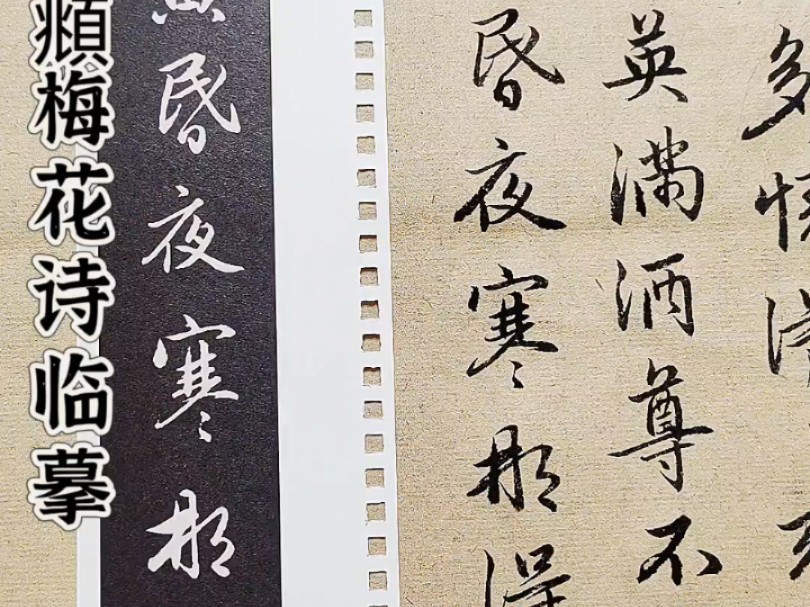 頫梅花诗临摹
多
英滿酒尊不
昏夜寒那得
昏夜寒那